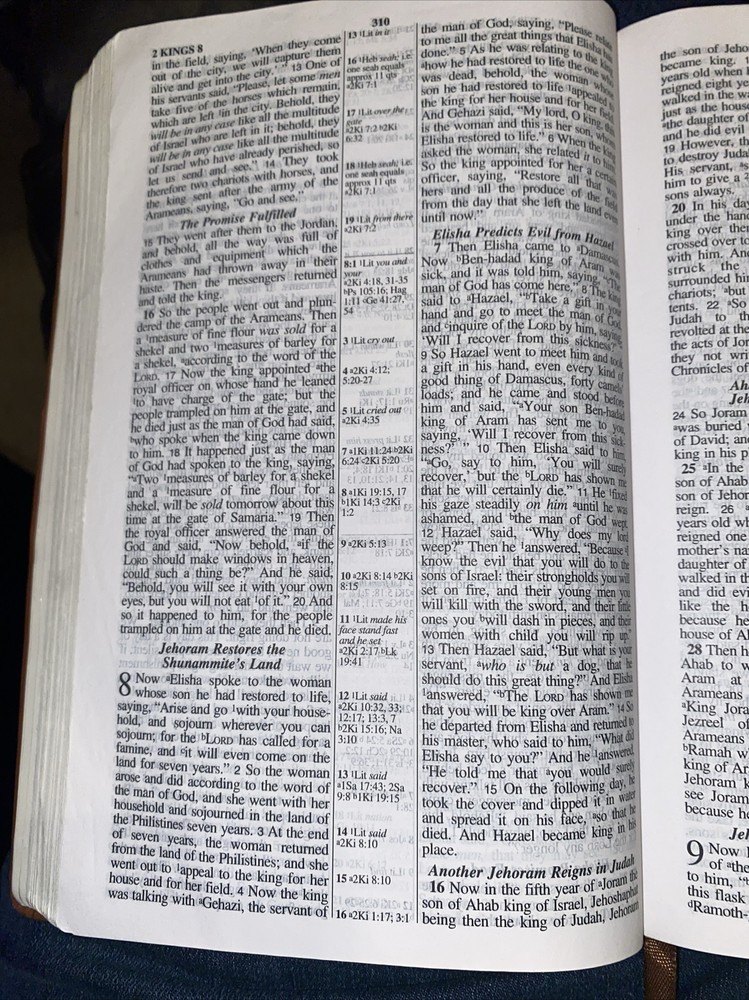 310
2 KINGS 8
in the field, saying, 'When they come
out of the city, we will capture them
alive and get into the city.'" 13 One of
his servants said, "Please, let some men
take five of the horses which remain,
which are left ¹in the city. Behold, they
will be in any case like all the multitude
of Israel who are left in it; behold, they
will be in any case like all the multitude
of Israel who have already perished, so
let us send and see." 14 They took
therefore two chariots with horses, and
the king sent after the army of the
Arameans, saying, "Go and see."
The Promise Fulfilled
15 They went after them to the Jordan,
and behold, all the way was full of
clothes and equipment which the
Arameans had thrown away in their
haste. Then the messengers returned
and told the king.
16 So the people went out and plun-
dered the camp of the Arameans. Then
a ¹measure of fine flour was sold for a
shekel and two ¹measures of barley for
a shekel, ᵃaccording to the word of the
LORD. 17 Now the king appointed ᵃthe
royal officer on whose hand he leaned
¹to have charge of the gate; but the
people trampled on him at the gate, and
he died just as the man of God had said,
ᵇwho spoke when the king came down
to him. 18 It happened just as the man
of God had spoken to the king, saying,
"ᵃTwo ¹measures of barley for a shekel
and a ¹measure of fine flour for a
shekel, will be sold tomorrow about this
time at the gate of Samaria." 19 Then
the royal officer answered the man of
God and said, "Now behold, ᵃif the
LORD should make windows in heaven,
could such a thing be?" And he said,
"Behold, you will see it with your own
eyes, but you will not eat ¹of it." 20 And
so it happened to him, for the people
trampled on him at the gate and he died.
Jehoram Restores the
Shunammite's Land
8 Now ᵃElisha spoke to the woman
whose son he had restored to life,
saying, "Arise and go ¹with your house-
hold, and sojourn wherever you can
sojourn; for the ᵇLORD has called for a
famine, and ᶜit will even come on the
land for seven years." 2 So the woman
arose and did according to the word of
the man of God, and she went with her
household and sojourned in the land of
the Philistines seven years. 3 At the end
of seven years, the woman returned
from the land of the Philistines; and she
went out to ¹appeal to the king for her
house and for her field. 4 Now the king
was talking with ᵃGehazi, the servant of
13 ¹Lit in it
16 ¹Heb seah; i.e.
one seah equals
approx 11 qts
ᵃ2Ki 7:1
17 ¹Lit over the
gate
ᵃ2Ki 7:2 ᵇ2Ki
6:32
18 ¹Heb seah; i.e.
one seah equals
approx 11 qts
ᵃ2Ki 7:1
19 ¹Lit from there
ᵃ2Ki 7:2
8:1 ¹Lit you and
your
ᵃ2Ki 4:18, 31-35
ᵇPs 105:16; Hag
1:11 ᶜGe 41:27,
54
3 ¹Lit cry out
4 ᵃ2Ki 4:12;
5:20-27
5 ¹Lit cried out
ᵃ2Ki 4:35
7 ᵃ1Ki 11:24 ᵇ2Ki
6:24 ᶜ2Ki 5:20
8 ᵃ1Ki 19:15, 17
ᵇ1Ki 14:3 ᶜ2Ki
1:2
9 ᵃ2Ki 5:13
10 ᵃ2Ki 8:14 ᵇ2Ki
8:15
11 ¹Lit made his
face stand fast
and he set
ᵃ2Ki 2:17 ᵇLk
19:41
12 ¹Lit said
ᵃ2Ki 10:32, 33;
12:17; 13:3, 7
ᵇ2Ki 15:16; Na
3:10
13 ¹Lit said
ᵃ1Sa 17:43; 2Sa
9:8 ᵇ1Ki 19:15
14 ¹Lit said
ᵃ2Ki 8:10
15 ᵃ2Ki 8:10
16 ᵃ2Ki 1:17; 3:1
the man of God, saying, "Please relate
to me all the great things that Elisha has
done." 5 As he was relating to the king
ᵃhow he had restored to life the one who
was dead, behold, the woman whose
son he had restored to life ¹appealed to
the king for her house and for her field.
And Gehazi said, "My lord, O king, this
is the woman and this is her son, whom
Elisha restored to life." 6 When the king
asked the woman, she related it to him.
So the king appointed for her a certain
officer, saying, "Restore all that was
hers and all the produce of the field
from the day that she left the land even
until now."
Elisha Predicts Evil from Hazael
7 Then Elisha came to ᵃDamascus.
Now ᵇBen-hadad king of Aram was
sick, and it was told him, saying, "ᶜThe
man of God has come here." 8 The king
said to ᵃHazael, "ᵇTake a gift in your
hand and go to meet the man of God,
and ᶜinquire of the LORD by him, saying,
'Will I recover from this sickness?'"
9 So Hazael went to meet him and took
a gift in his hand, even every kind of
good thing of Damascus, forty camels'
loads; and he came and stood before
him and said, "ᵃYour son Ben-hadad
king of Aram has sent me to you,
saying, 'Will I recover from this sick-
ness?'" 10 Then Elisha said to him,
"ᵃGo, say to him, 'You will surely
recover,' but the ᵇLORD has shown me
that he will certainly die." 11 He ¹fixed
his gaze steadily on him ᵃuntil he was
ashamed, and ᵇthe man of God wept.
12 Hazael said, "Why does my lord
weep?" Then he ¹answered, "Because ᵃI
know the evil that you will do to the
sons of Israel: their strongholds you will
set on fire, and their young men you
will kill with the sword, and their little
ones you ᵇwill dash in pieces, and their
women with child you will rip up."
13 Then Hazael said, "But what is your
servant, ᵃwho is but a dog, that he
should do this great thing?" And Elisha
¹answered, "ᵇThe LORD has shown me
that you will be king over Aram." 14 So
he departed from Elisha and returned to
his master, who said to him, "What did
Elisha say to you?" And he ¹answered,
"He told me that ᵃyou would surely
recover." 15 On the following day, he
took the cover and dipped it in water
and spread it on his face, ᵃso that he
died. And Hazael became king in his
place.
Another Jehoram Reigns in Judah
16 Now in the fifth year of ᵃJoram the
son of Ahab king of Israel, Jehoshaphat
being then the king of Judah, Jehoram
the son of Jeho
became king. 1
years old when
reigned eight ye
walked in the w
just as the hous
ᵃthe daughter of
and he did evil
19 However, th
to destroy Juda
His servant, ᵃs
him to give a ²
sons always.
20 In his day
under the han
king over the
crossed over to
with him. And
struck the
surrounded hi
chariots; ᵃbut
tents. 22 ᵃSo
Judah to th
revolted at the
the acts of Jor
they not wri
Chronicles of
Ah
Jeh
24 So Joram
ᵃwas buried
of David; an
king in his p
25 ᵃIn the
son of Ahab
son of Jehor
reign. 26 ᵃ
years old wh
reigned one
mother's na
daughter of
walked in th
and did evi
like the h
because he
house of A
28 Then h
Ahab to w
Aram at
Arameans
ᵃKing Jora
Jezreel of
Arameans
ᵇRamah w
king of Ar
Jehoram k
see Joram
because he
Jeh
9 Now
of ᵃthe
to him, "ᵇ
this flask
ᵈRamoth-